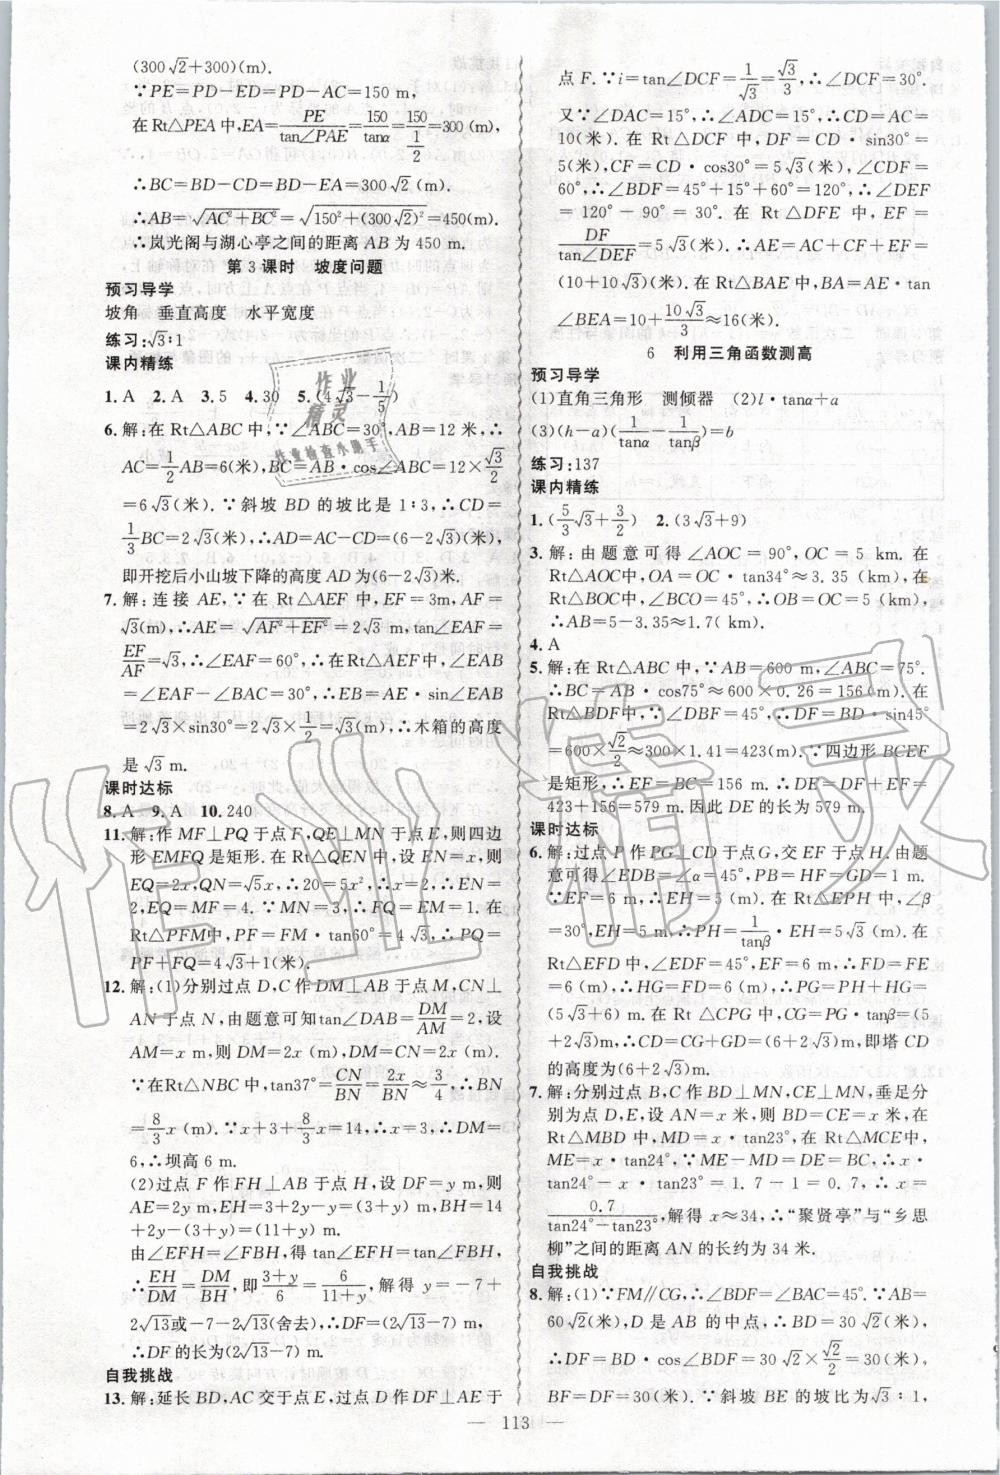 (300√2+300)(m).
∵PE=PD-ED=PD-AC=150 m,
在Rt△PEA中,EA=PE/tan∠PAE=150/tanα=150/(1/2)=300(m),
∴BC=BD-CD=BD-EA=300√2(m).
∴AB=√(AC²+BC²)=√(150²+(300√2)²)=450(m).
∴岚光阁与湖心亭之间的距离AB为450 m.
第3课时 坡度问题
预习导学
坡角 垂直高度 水平宽度
练习:√3∶1
课内精练
1.A 2.A 3.5 4.30 5.(4√3-1/5)
6.解:在Rt△ABC中,∵∠ABC=30°,AB=12米,∴
AC=1/2AB=6(米),BC=AB·cos∠ABC=12×√3/2
=6√3(米).∵斜坡BD的坡比是1∶3,∴CD=
1/3BC=2√3(米),∴AD=AC-CD=(6-2√3)(米),
即开挖后小山坡下降的高度AD为(6-2√3)米.
7.解:连接AE,∵在Rt△AEF中,EF=3m,AF=
√3(m),∴AE=√(AF²+EF²)=2√3(m),tan∠EAF=
EF/AF=√3,∴∠EAF=60°,∴在Rt△AEF中,∠EAB
=∠EAF-∠BAC=30°,∴EB=AE·sin∠EAB
=2√3×sin30°=2√3×1/2=√3(m),∴木箱的高度
是√3 m.
课时达标
8.A 9.A 10.240
11.解:作MF⊥PQ于点F,QE⊥MN于点E,则四边
形EMFQ是矩形.在Rt△QEN中,设EN=x,则
EQ=2x,QN=√5x,∴20=5x²,∴x=2,∴EN=
2,EQ=MF=4.∵MN=3,∴FQ=EM=1.在
Rt△PFM中,PF=FM·tan60°=4√3,∴PQ=
PF+FQ=4√3+1(米).
12.解:(1)分别过点D,C作DM⊥AB于点M,CN⊥
AB于点N,由题意可知tan∠DAB=DM/AM=2,设
AM=x(m),则DM=2x(m),DM=CN=2x(m).
∵在Rt△NBC中,tan37°=CN/BN=2x/BN≈3/4,∴BN
=8/3x(m).∵x+3+8/3x=14,∴x=3,∴DM=
6,∴坝高6 m.
(2)过点F作FH⊥AB于点H,设DF=y(m),则
AE=2y m,EH=3+2y-y=(3+y)m,BH=14
+2y-(3+y)=(11+y)m.
由∠EFH=∠FBH,得tan∠EFH=tan∠FBH,
∴EH/DM=DM/BH,即(3+y)/6=6/(11+y),解得y=-7+
2√13或-7-2√13(舍去),∴DF=(2√13-7)m.
∴DF的长为(2√13-7)m.
自我挑战
13.解:延长BD,AC交于点E,过点D作DF⊥AE于
点F.∵i=tan∠DCF=1/√3=√3/3,∴∠DCF=30°.
又∵∠DAC=15°,∴∠ADC=15°,∴CD=AC=
10(米).在Rt△DCF中,DF=CD·sin30°=
5(米),CF=CD·cos30°=5√3(米),∠CDF=
60°,∴∠BDF=45°+15°+60°=120°,∴∠DEF
=120°-90°=30°.在Rt△DFE中,EF=
DF/tan∠DEF=5√3(米),∴AE=AC+CF+EF=
(10+10√3)(米).在Rt△BAE中,BA=AE·tan
∠BEA=10+10√3/3≈16(米).
6 利用三角函数测高
预习导学
(1)直角三角形 测倾器 (2)l·tanα+a
(3)(h-a)(1/tanα-1/tanβ)=b
练习:137
课内精练
1.(5/3√3+3/2) 2.(3√3+9)
3.解:由题意可得∠AOC=90°,OC=5 km.在
Rt△AOC中,OA=OC·tan34°≈3.35(km),在
Rt△BOC中,∠BCO=45°,∴OB=OC=5(km),
∴AB=5-3.35≈1.7(km).
4.A
5.解:在Rt△ABC中,∵AB=600 m,∠ABC=75°.
∴BC=AB·cos75°≈600×0.26=156(m).在
Rt△BDF中,∵∠DBF=45°,∴DF=BD·sin45°
=600×√2/2≈300×1.41=423(m).∵四边形BCEF
是矩形,∴EF=BC=156 m.∴DE=DF+EF=
423+156=579 m.因此DE的长为579 m.
课时达标
6.解:过点P作PG⊥CD于点G,交EF于点H.由题
意可得∠EDB=∠α=45°,PB=HF=GD=1 m.
∵EF=6 m,∴EH=5(m).在Rt△EPH中,∠β=
30°,EH=5 m.∴PH=EH/tanβ=5√3(m).在
Rt△EFD中,∠EDF=45°,EF=6 m.∴FD=FE
=6(m),∴HG=FD=6(m),∴PG=PH+HG=
(5√3+6)m.在Rt△CPG中,CG=PG·tanβ=(5
+2√3)m,∴CD=CG+GD=(6+2√3)m,即塔CD
的高度为(6+2√3)m.
7.解:分别过点B,C作BD⊥MN,CE⊥MN,垂足分
别为点D,E,设AN=x米,则BD=CE=x米,在
Rt△MBD中,MD=x·tan23°,在Rt△MCE中,
ME=x·tan24°,∵ME-MD=DE=BC,∴x·
tan24°-x·tan23°=1.7-1=0.7,∴x=
0.7/(tan24°-tan23°),解得x≈34,∴“聚贤亭”与“乡思
柳”之间的距离AN的长约为34米.
自我挑战
8.解:(1)∵FM∥CG,∴∠BDF=∠BAC=45°.∵AB=
60√2(米),D是AB的中点,∴BD=30√2(米),
∴DF=BD·cos∠BDF=30√2×√2/2=30(米),
BF=DF=30(米).∵斜坡BE的坡比为√3∶1,
— 113 —
作业精灵
作业检查小助手
作业精灵